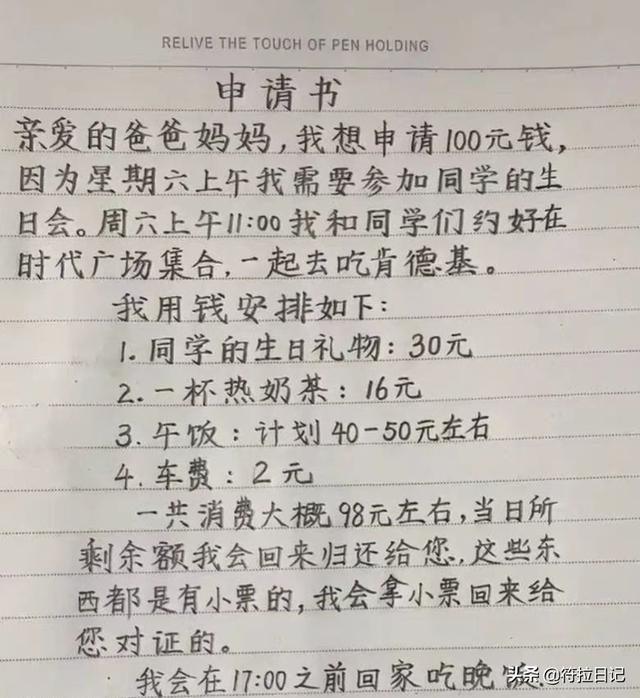 RELIVE THE TOUCH OF PEN HOLDING
申请书
亲爱的爸爸妈妈,我想申请100元钱,
因为星期六上午我需要参加同学的生
日会。周六上午11:00我和同学们约好在
时代广场集合,一起去吃肯德基。
我用钱安排如下:
1.同学的生日礼物:30元
2.一杯热奶茶:16元
3.午饭:计划40-50元左右
4.车费:2元
一共消费大概98元左右,当日所
剩余额我会回来归还给您,这些东
西都是有小票的,我会拿小票回来给
您对证的。
我会在17:00之前回家吃晚饭.
头条 @符拉日记